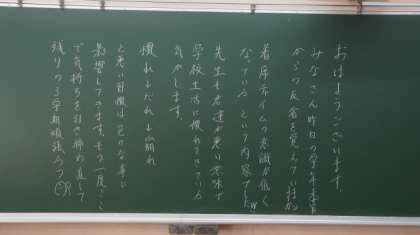 おはようございます。
みなさん昨日の学年主任
からの反省を覚えていますか
着席タイムの意識が低く
なっているという内容でした。
先生も君達が悪い意味で
学校生活に慣れてきている
気がします。
慣れ だれ 崩れ
と悪い習慣は色々な事に
影響してきます。もう一度、ここ
で気持ちを引き締め直して
残りの3学期頑張ろう